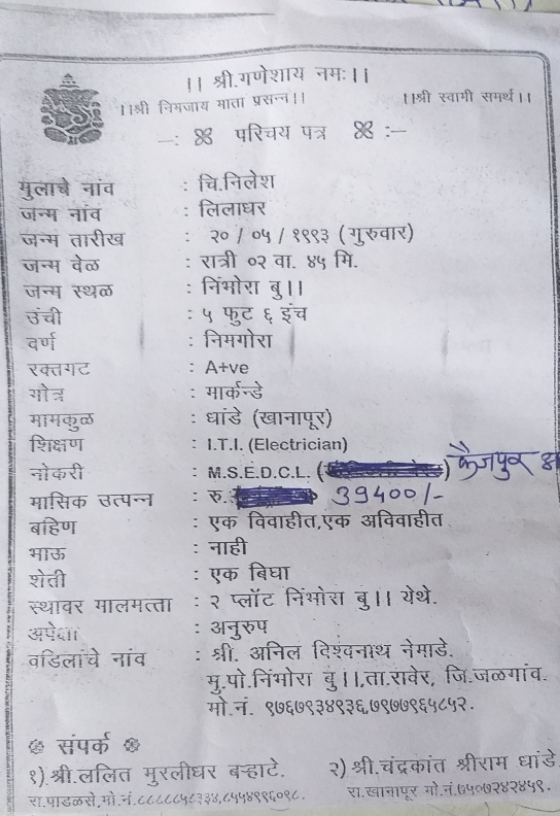 ।। श्री.गणेशाय नमः।।
।।श्री निमजाय माता प्रसन्न।। ।।श्री स्वामी समर्थ।।
–: परिचय पत्र :–
मुलाचे नांव : चि.निलेश
जन्म नांव : लिलाधर
जन्म तारीख : २० / ०५ / १९९३ (गुरुवार)
जन्म वेळ : रात्री ०२ वा. ४५ मि.
जन्म स्थळ : निंभोरा बु।।
उंची : ५ फुट ६ इंच
वर्ण : निमगोरा
रक्तगट : A+ve
गोत्र : मार्कन्डे
मामकुळ : धांडे (खानापूर)
शिक्षण : I.T.I. (Electrician)
नोकरी : M.S.E.D.C.L. ( ) फैजपुर
मासिक उत्पन्न : रु. 39400/-
बहिण : एक विवाहीत,एक अविवाहीत
भाऊ : नाही
शेती : एक बिघा
स्थावर मालमत्ता : २ प्लॉट निंभोरा बु।। येथे.
अपेक्षा : अनुरुप
वडिलांचे नांव : श्री. अनिल विश्वनाथ नेमाडे.
मु.पो.निंभोरा बु।।,ता.रावेर, जि.जळगांव.
मो.नं. ९७६७९३४९३६,७९७७९६५८५२.
संपर्क
१) श्री.ललित मुरलीधर बऱ्हाटे. २) श्री.चंद्रकांत श्रीराम धांडे.
रा.पाडळसे,मो.नं.८८८८८५८३३४,८५५४९९६०१८. रा.खानापूर मो.नं.७५०७२४२४५९.